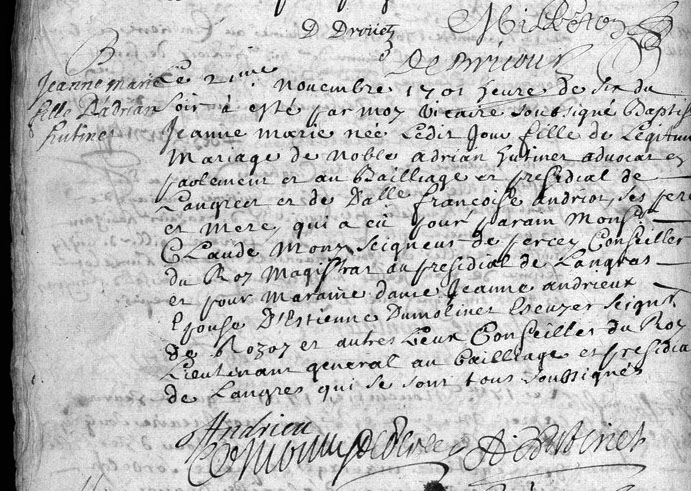 D Drouet
De Pricour
Jeanne marie
fille D'adrian
hutinet
Le 2ime Novembre 1701 heure de six du
soir à esté par moy vicaire soubsigné Baptisé
Jeanne marie née Ledit Jour fille de Legitime
Mariage de Noble adrian hutinet advocat en
parlement et au Bailliage et presidial de
Langres et de Dalle francoise andriot, ses pere
et mere, qui a eü pour parain Monsr
CLaude Mony Seigneur de percey Conseiller
du Roy Magistrat au presidial de Langres
et pour maraine dame Jeanne andrieux
Epouse D'Estienne Dumolinet Escuyer Seignr
de Rozoy et autres Lieux Conseiller du Roy
Lieutenant general au bailliage et presidial
de Langres qui se sont tous soussignés
J Andrieu
C Mony de Percey A Hutinet